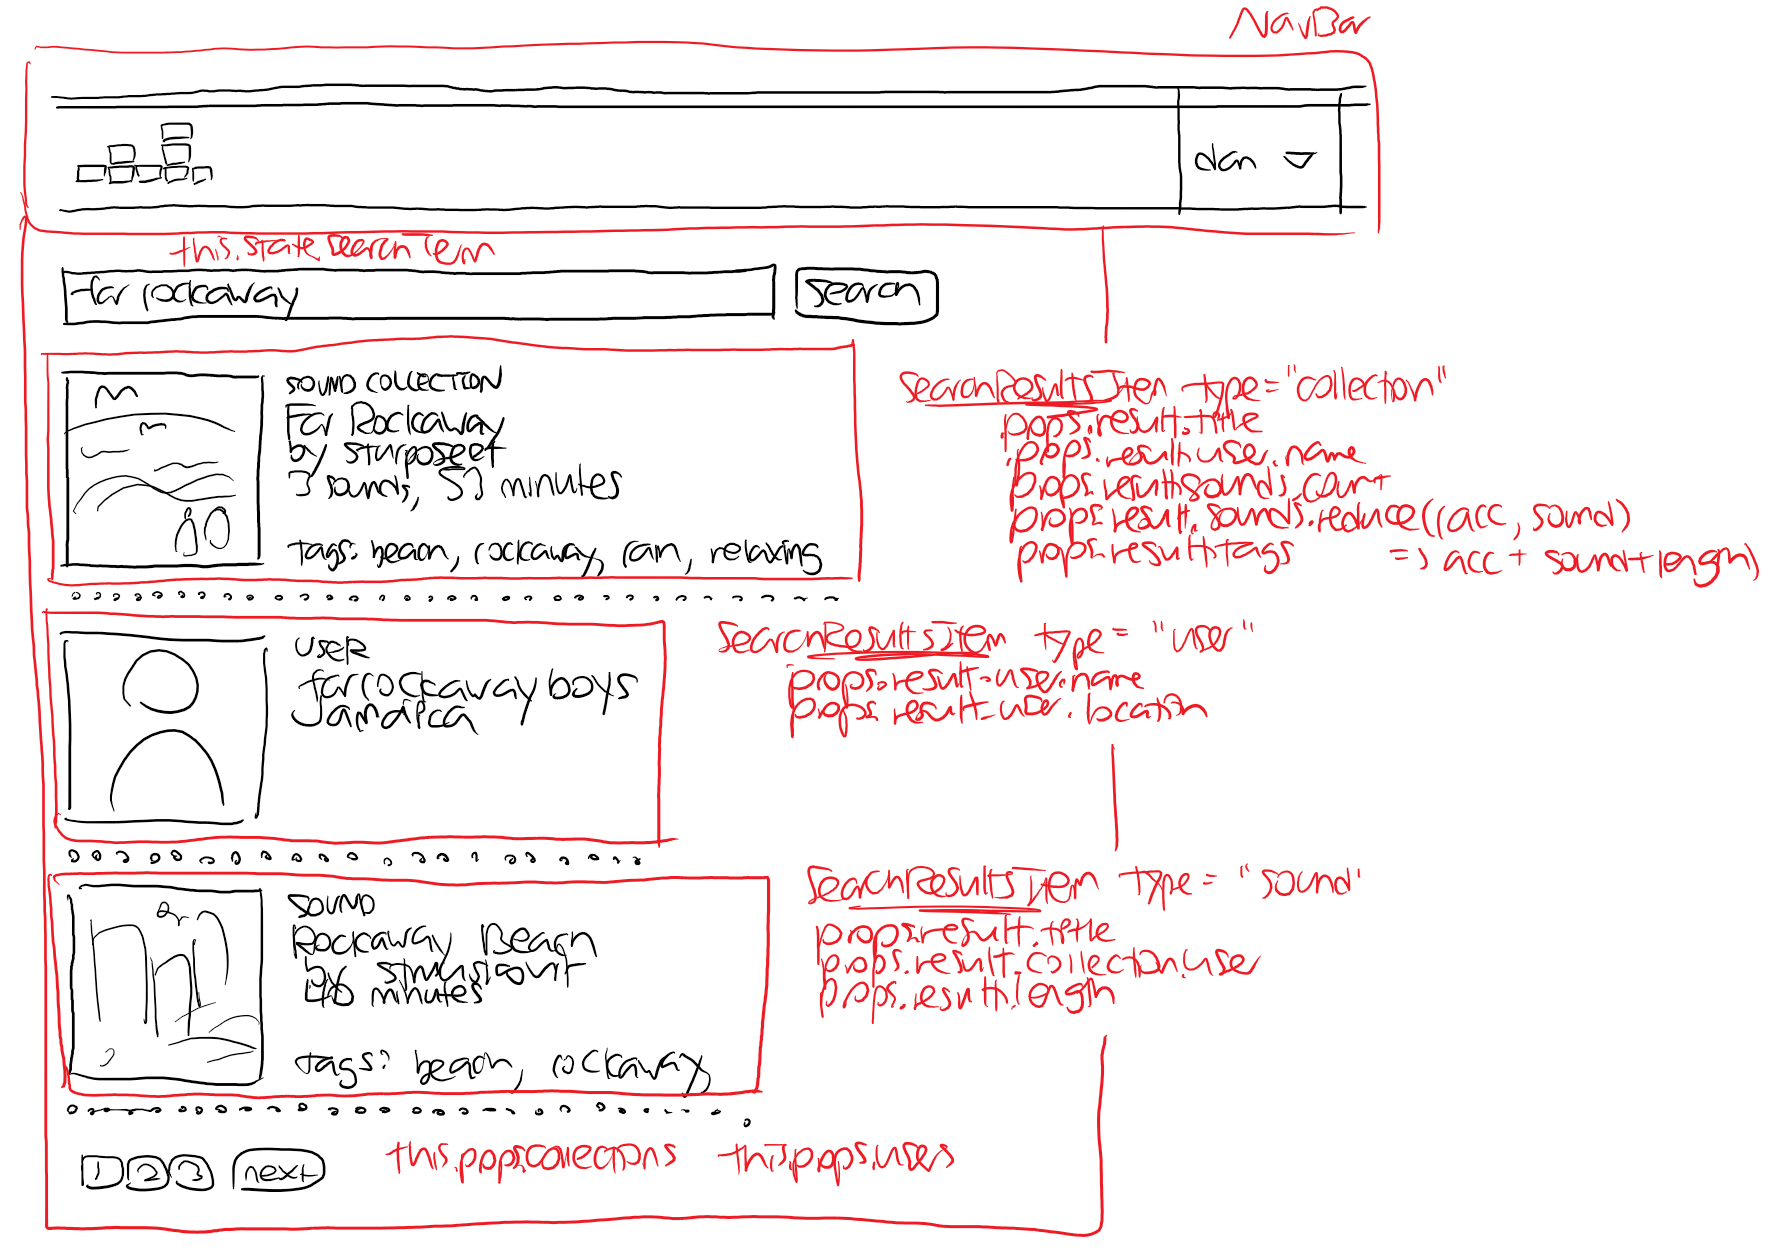 NavBar
dan
this.state.searchTerm
far rockaway
Search
SOUND COLLECTION
Far Rockaway
by sturposeef
3 sounds, 53 minutes
tags: beach, rockaway, rain, relaxing
SearchResultsItem type="collection"
props.result.title
props.result.user.name
props.result.sounds.count
props.result.sounds.reduce((acc, sound)
=> acc + sound+length)
props.result.tags
USER
farrockawayboys
Jamaica
SearchResultsItem type = "user"
props.result.user.name
props.result.user.location
SOUND
Rockaway Beach
by
46 minutes
tags: beach, rockaway
SearchResultsItem type = "sound"
props.result.title
props.result.collection.user
props.result.length
1 2 3 next
this.props.collections this.props.users